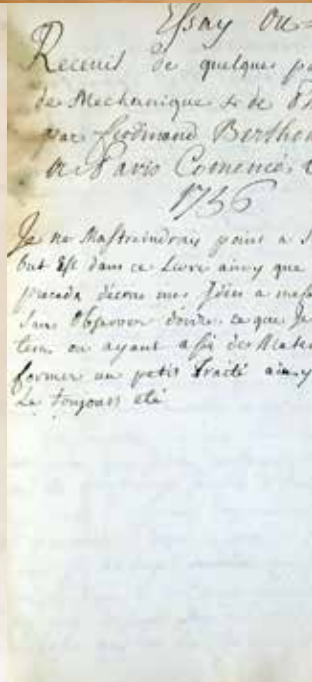 Essay ou=
Receuil de quelques p
de Mechanique & de Ph
par ferdinand Berthou
a Paris Comencé
1756
Je ne Mastreindray point a
but Est dans ce Livre ainsy que
decrire mes Idées a mes
Sans Observer dordre ce que Je
tems ou ayant afsé des Mate
former un petit Traité ainsy
La toujours eté